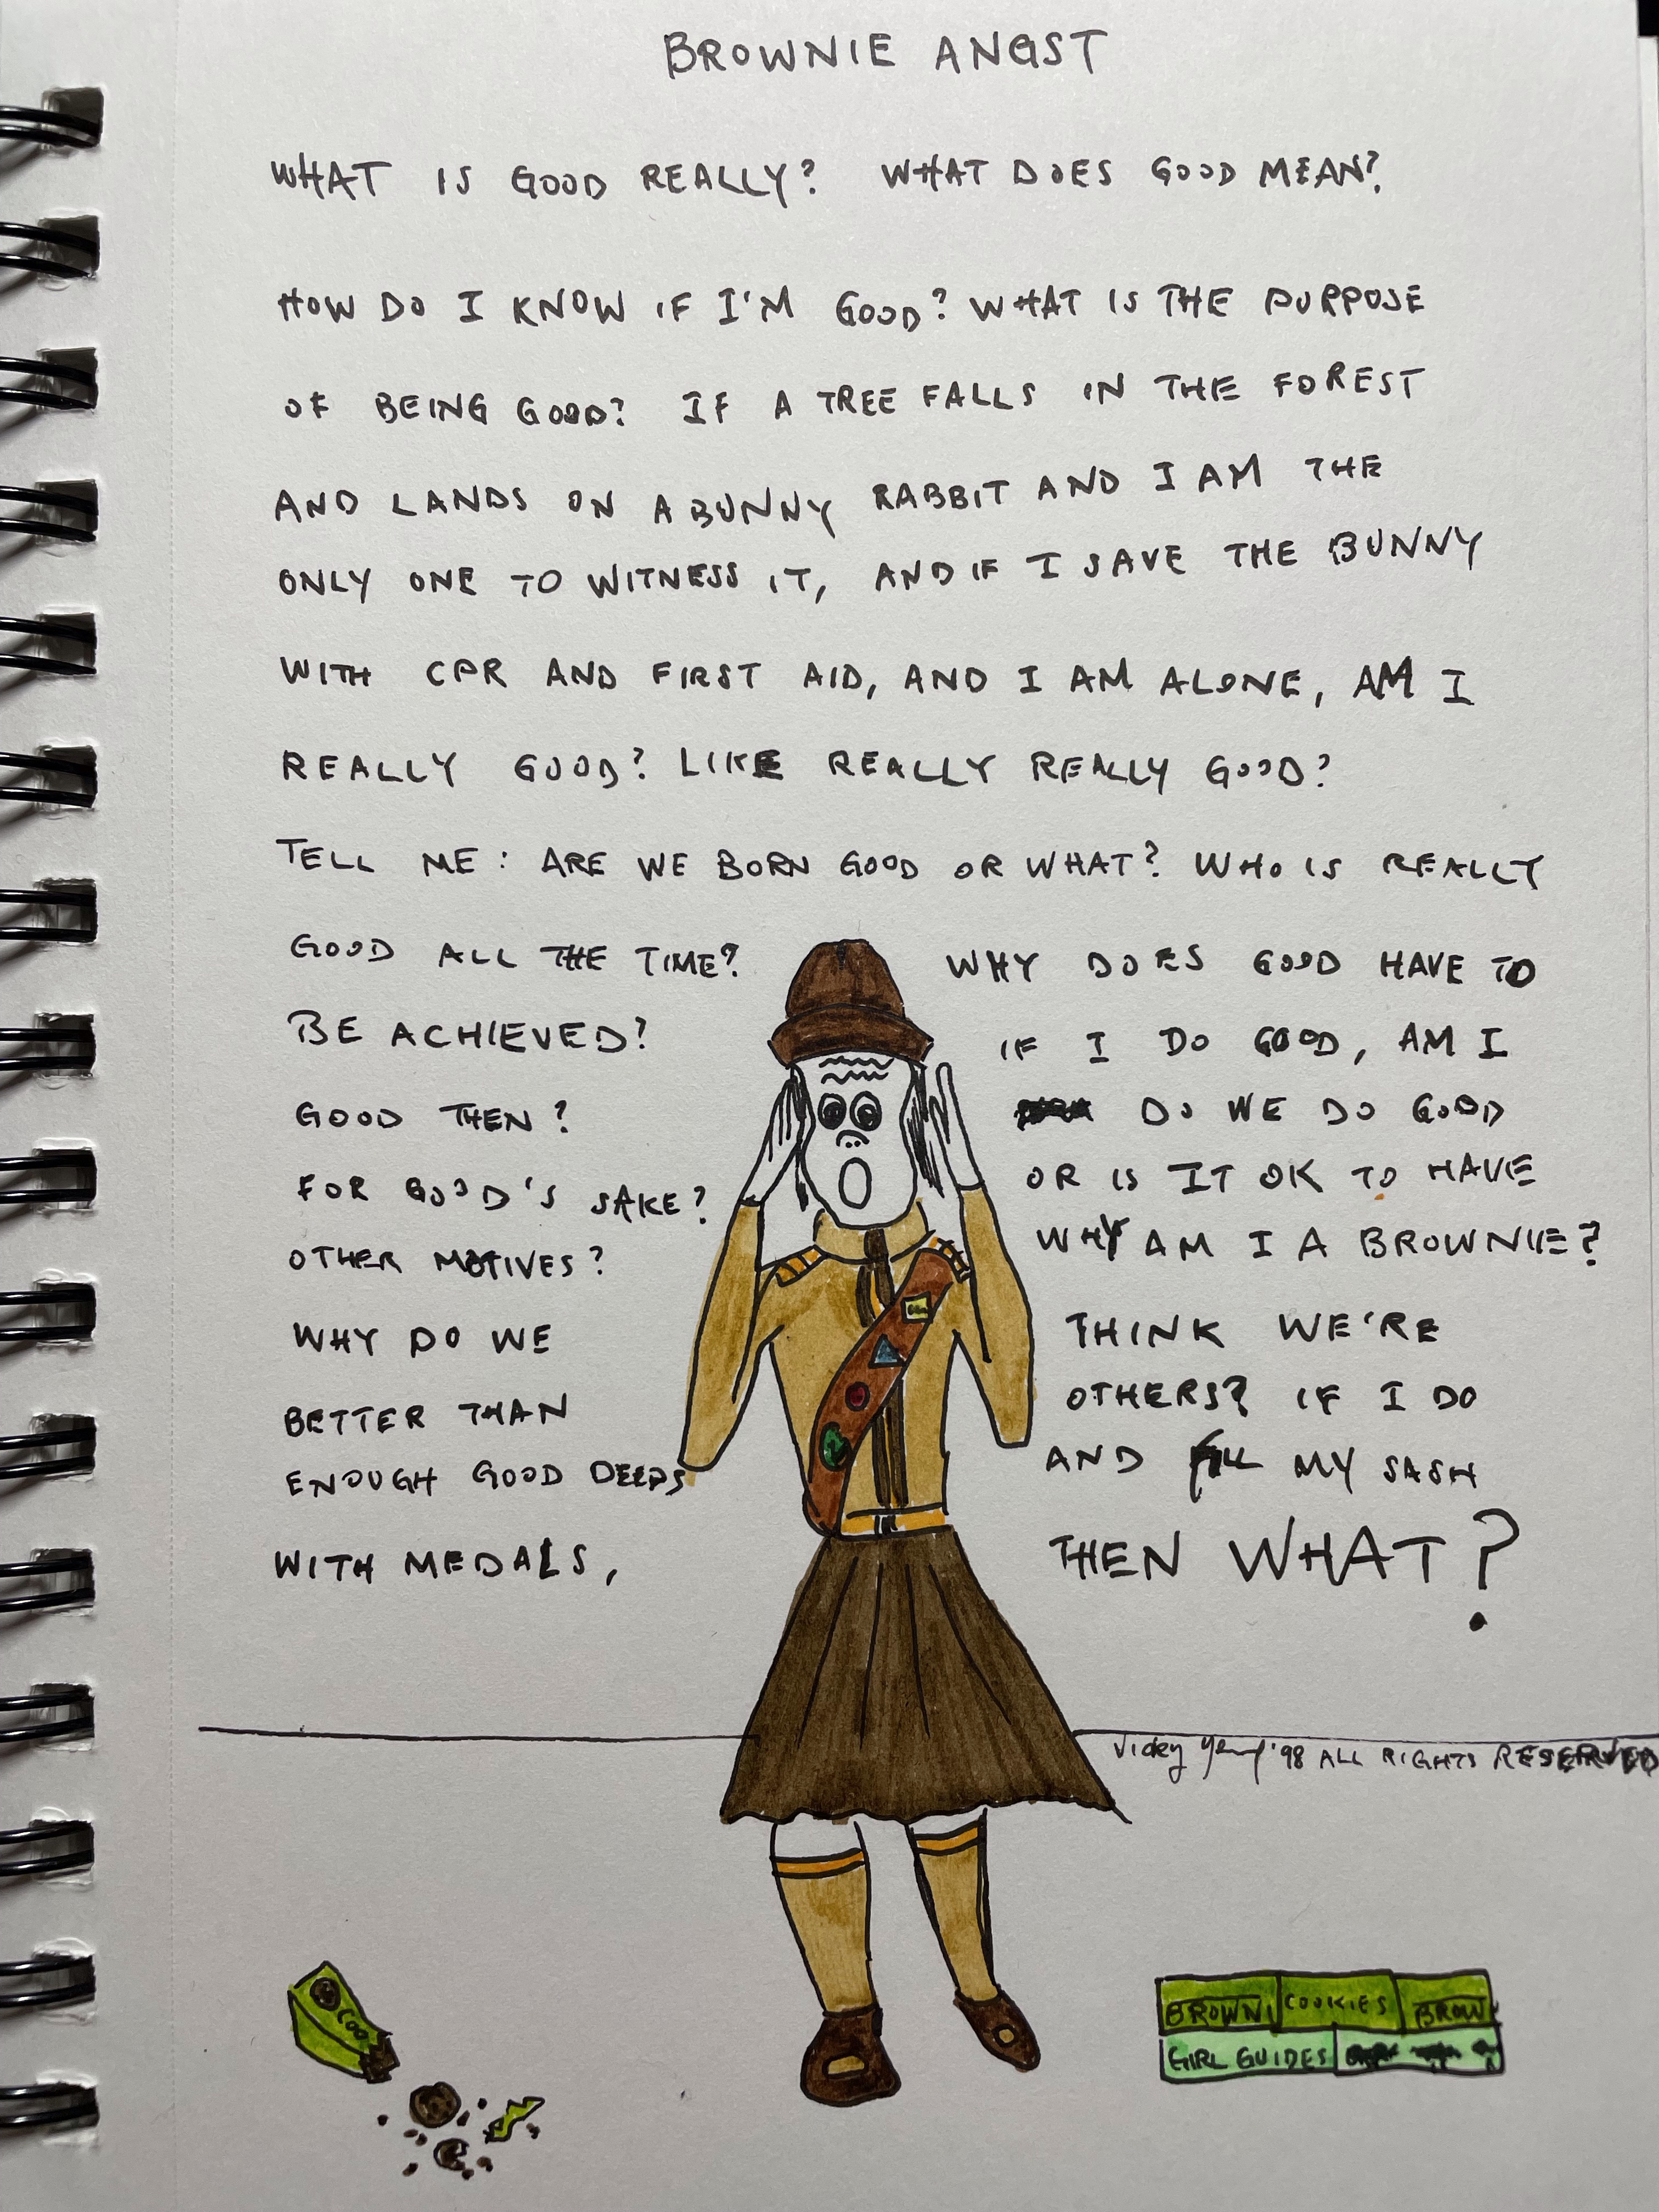 BROWNIE ANGST
WHAT IS GOOD REALLY? WHAT DOES GOOD MEAN?
HOW DO I KNOW IF I'M GOOD? WHAT IS THE PURPOSE
OF BEING GOOD? IF A TREE FALLS IN THE FOREST
AND LANDS ON A BUNNY RABBIT AND I AM THE
ONLY ONE TO WITNESS IT, AND IF I SAVE THE BUNNY
WITH CPR AND FIRST AID, AND I AM ALONE, AM I
REALLY GOOD? LIKE REALLY REALLY GOOD?
TELL ME: ARE WE BORN GOOD OR WHAT? WHO IS REALLY
GOOD ALL THE TIME? WHY DOES GOOD HAVE TO
BE ACHIEVED? IF I DO GOOD, AM I
GOOD THEN? DO WE DO GOOD
FOR GOOD'S SAKE? OR IS IT OK TO HAVE
OTHER MOTIVES? WHY AM I A BROWNIE?
WHY DO WE THINK WE'RE
BETTER THAN OTHERS? IF I DO
ENOUGH GOOD DEEDS AND FILL MY SASH
WITH MEDALS, THEN WHAT?
Vicky '98 ALL RIGHTS RESERVED
COO
BROWNI COOKIES BROW
GIRL GUIDES